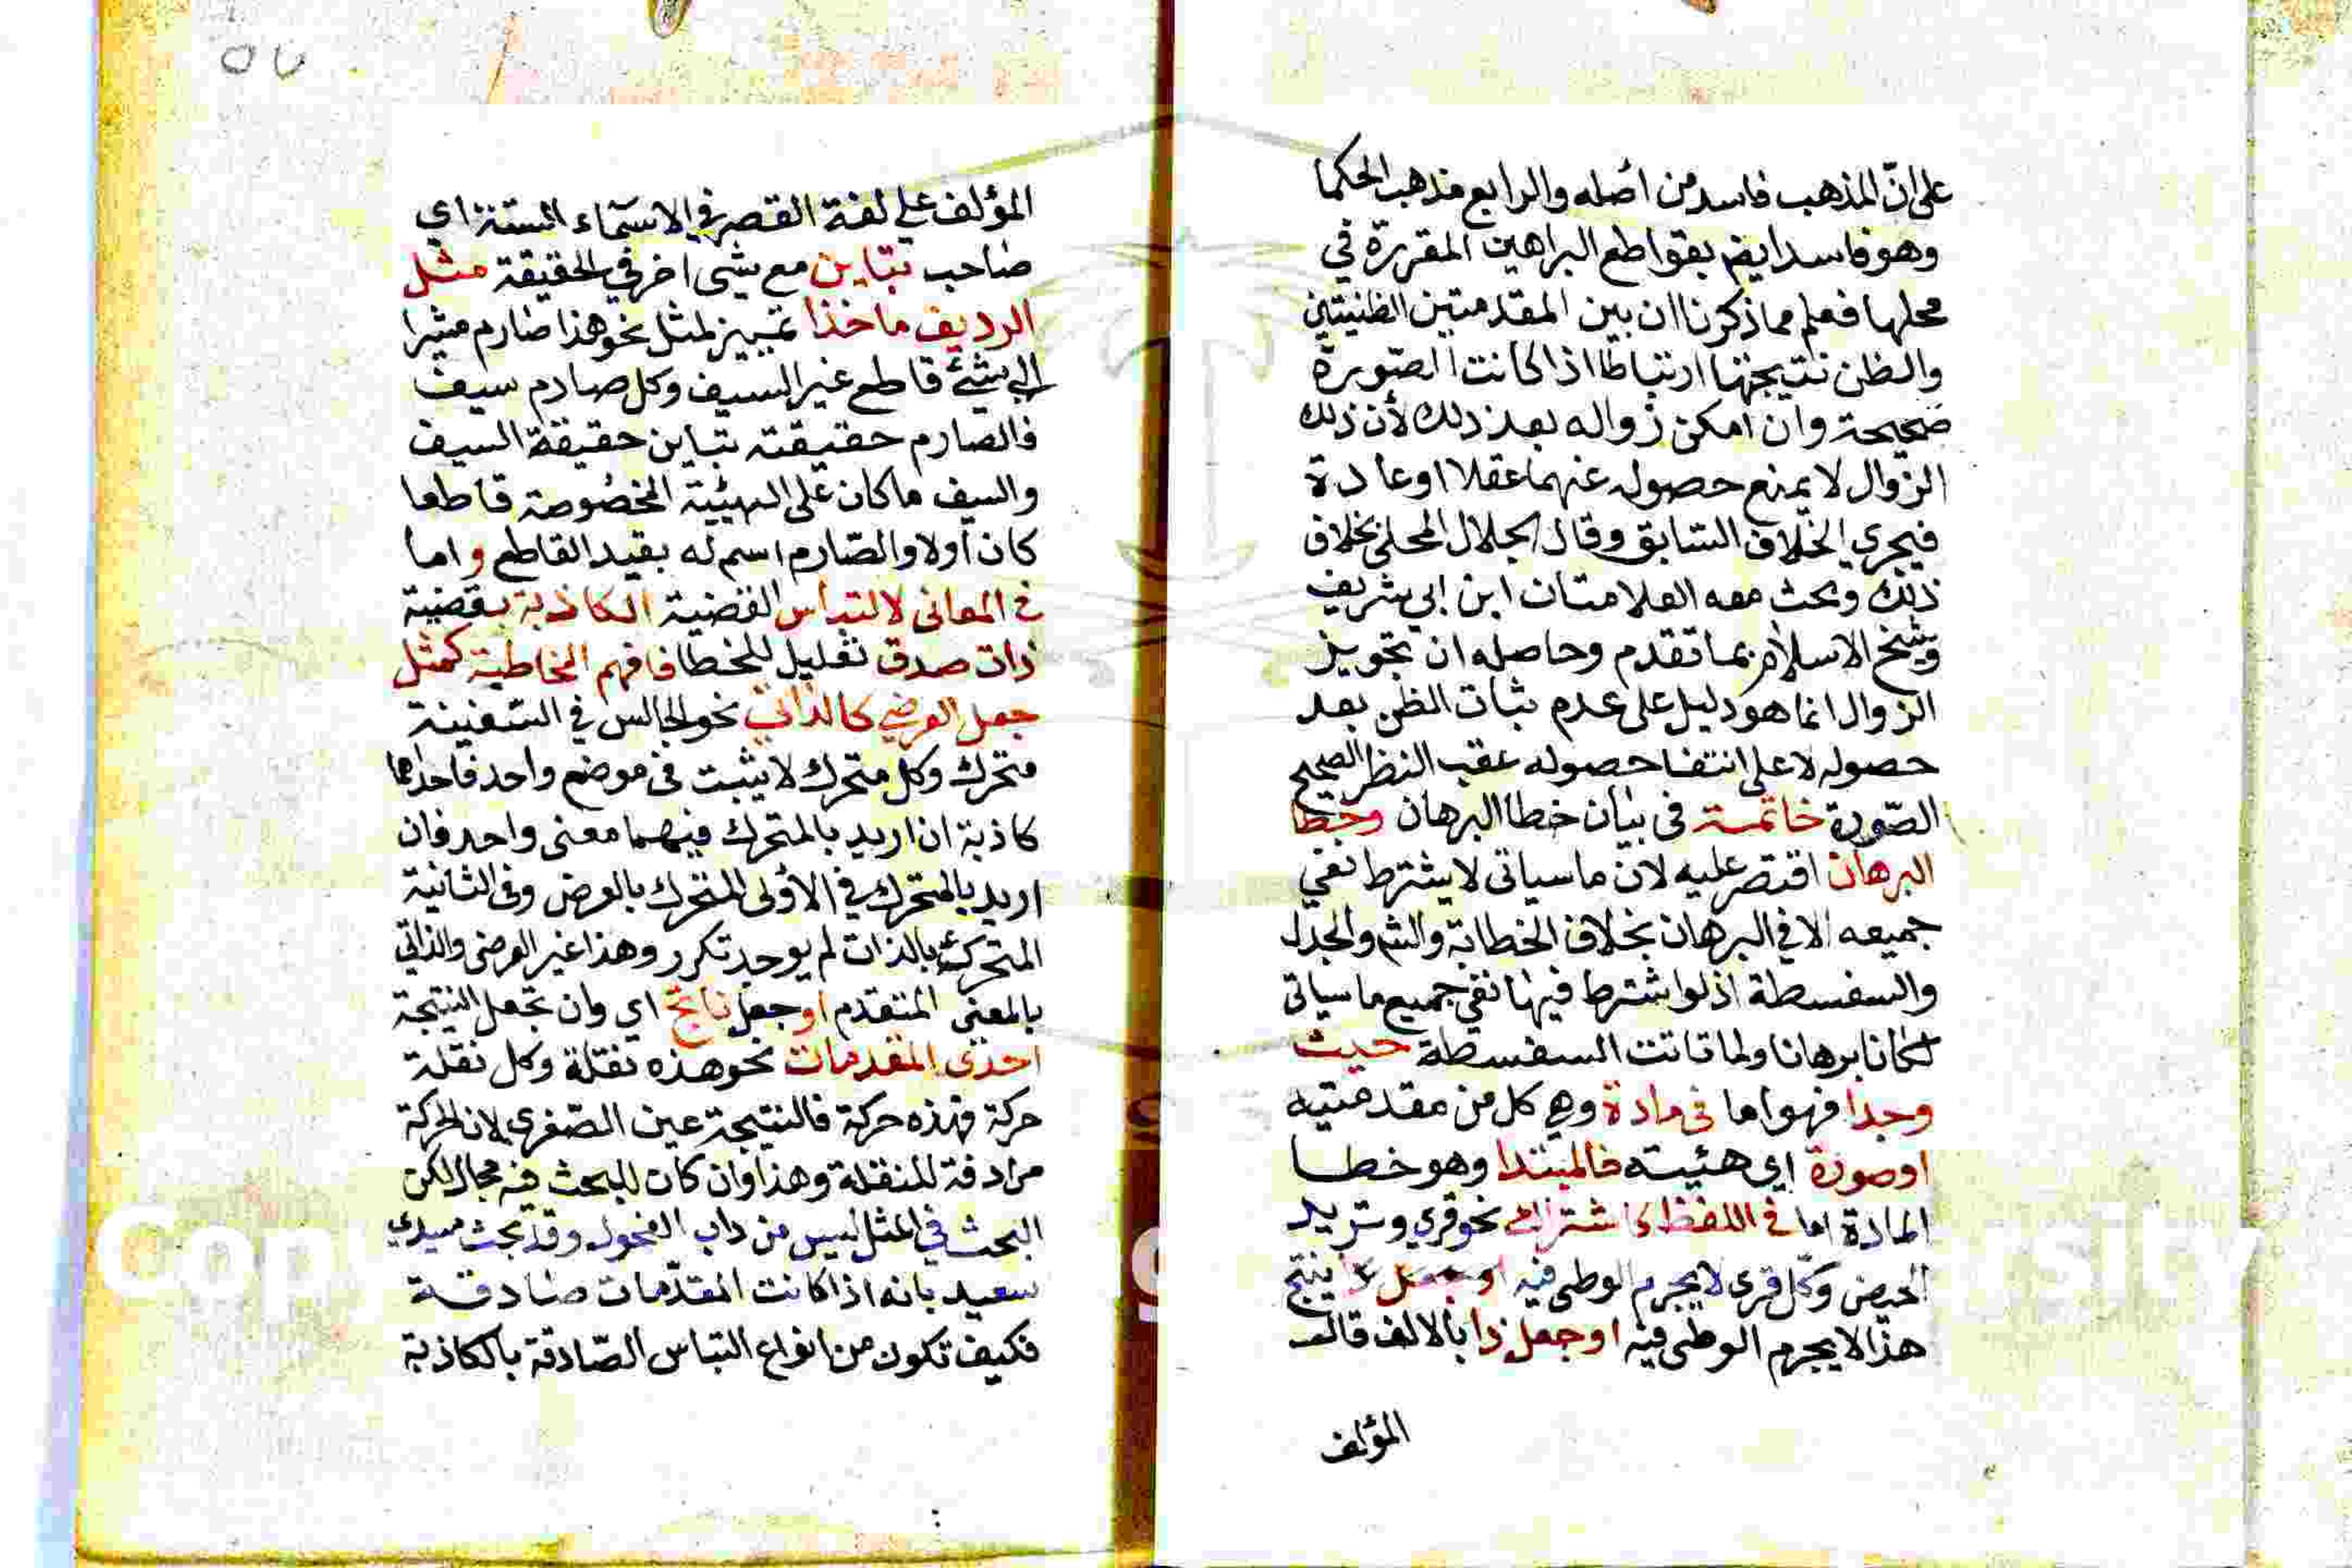 على انّ المذهب فاسد من اصله والرابع مذهب الحكما
وهو فاسد ايضم بقواطع البراهين المقررة في
محلها فعلم مما ذكرنا ان بين المقدمتين الظنيتين
والظن نتيجتها ارتباطا اذا كانت الصّورة
صحيحة وان امكن زواله بعد ذلك لأن ذلك
الزوال لا يمنع حصوله عنهما عقلا او عادة
فيجري الخلاف السّابق وقال الجلال المحلى بخلاف
ذلك وبحث معه العلامتان ابن ابي شريف
وشيخ الاسلام بما تقدم وحاصله ان تجويز
الزوال انما هو دليل على عدم ثبات الظن بعد
حصوله لا على انتفا حصوله عقب النظر الصحيح
الصّورة خاتمة فى بيان خطا البرهان وخطا
البرهان اقتصر عليه لان ما سياتى لا يشترط نفي
جميعه الا في البرهان بخلاف الخطابة والشم والجدل
والسفسطة اذ لو اشترط فيها نفي جميع ما سياتى
لكانا برهانا ولما تاتت السفسطة حيث
وجدا فهو اما فى مادة وهي كل من مقدمتيه
او صورة اي هئيته فالمبتدا وهو خطا
المادة اما في اللفظ كاشتراك نحو قري وتريد
الحيض وكل قرى لا يحرم الوطى فيه او جعل ينتج
هذا لا يحرم الوطى فيه او جعل ذا بالالف قال
المؤلف
٥٧
المؤلف على لغة القصر في الاسمآء الستة اي
صاحب تباين مع شى اخر في الحقيقة مثل
الرديف ماخذا تمييز لمثل نحو هذا صارم مشيرا
الى شئ قاطع غير السيف وكل صارم سيف
فالصارم حقيقته تباين حقيقة السيف
والسيف ما كان على الهيئية المخصوصة قاطعا
كان اولا والصّارم اسم له بقيد القاطع واما
في المعانى لالتباس القضية الكاذبة بقضية
ذات صدق تعليل للخطا فافهم المخاطبة كمثل
جعل العرضي كالذاتي نحو الجالس في السّفينة
متحرك وكل متحرك لا يثبت فى موضع واحد فاحداهما
كاذبة ان اريد بالمتحرك فيهما معنى واحد فان
اريد بالمتحرك في الأولى المتحرك بالعرض وفى الثانية
المتحرك بالذات لم يوجد تكرر وهذا غير العرضى والذاتي
بالمعنى المتقدم او جعل ناتج اي وان تجعل النتيجة
احدى المقدمات نحو هذه نقلة وكل نقلة
حركة فهذه حركة فالنتيجة عين الصّغرى لان الحركة
مرادفة للنقلة وهذا وان كان للبحث فيه مجال لكن
البحث في المثل ليس من داب الفحول وقد بحث سيدي
سعيد بانه اذا كانت المقدّمات صادقة
فكيف تكون من انواع التباس الصّادقة بالكاذبة